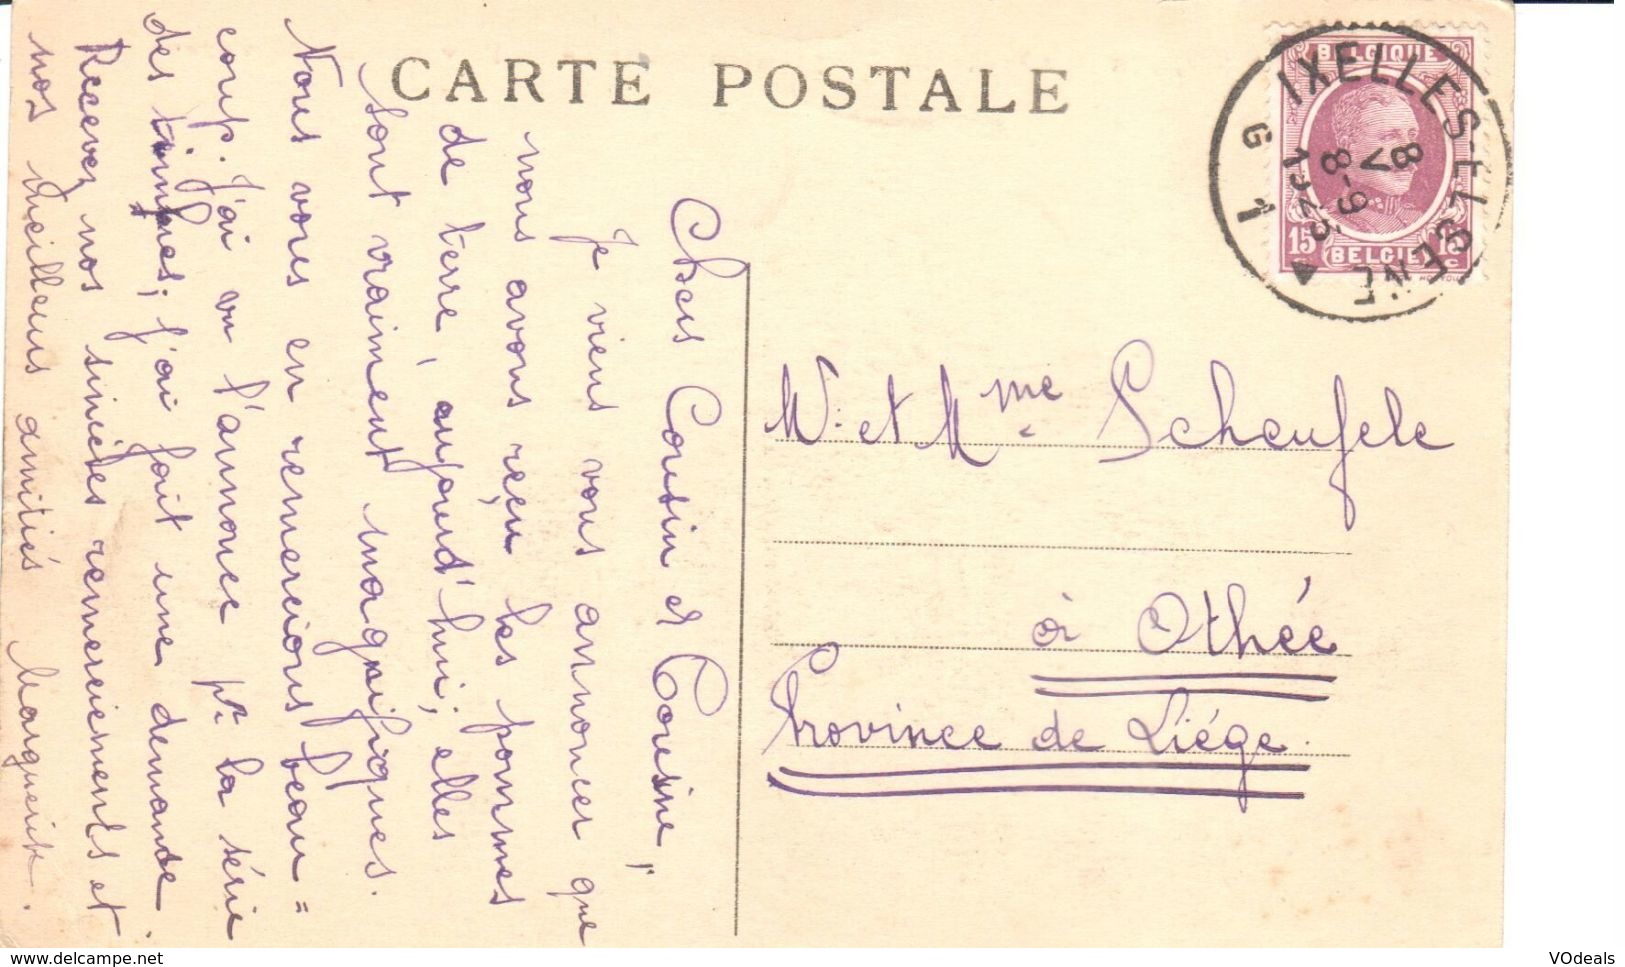 CARTE POSTALE
Chers Cousin et Cousine,
Je viens vous annoncer que
nous avons reçu les pommes
de terre, aujourd'hui; elles
sont vraiment magnifiques.
Nous vous en remercions beau=
coup. J'ai vu l'annonce pr. la série
des timbres; j'ai fait une demande.
Recevez nos sincères remerciements et
nos meilleurs amitiés Marguerite.
BELGIQUE
15 15
BELGIE
IXELLES-ELSENE
8 V
8-9
1925
G 1
M. et Mme Scheufele
à Othée
Province de Liége.
www.delcampe.net
VOdeals